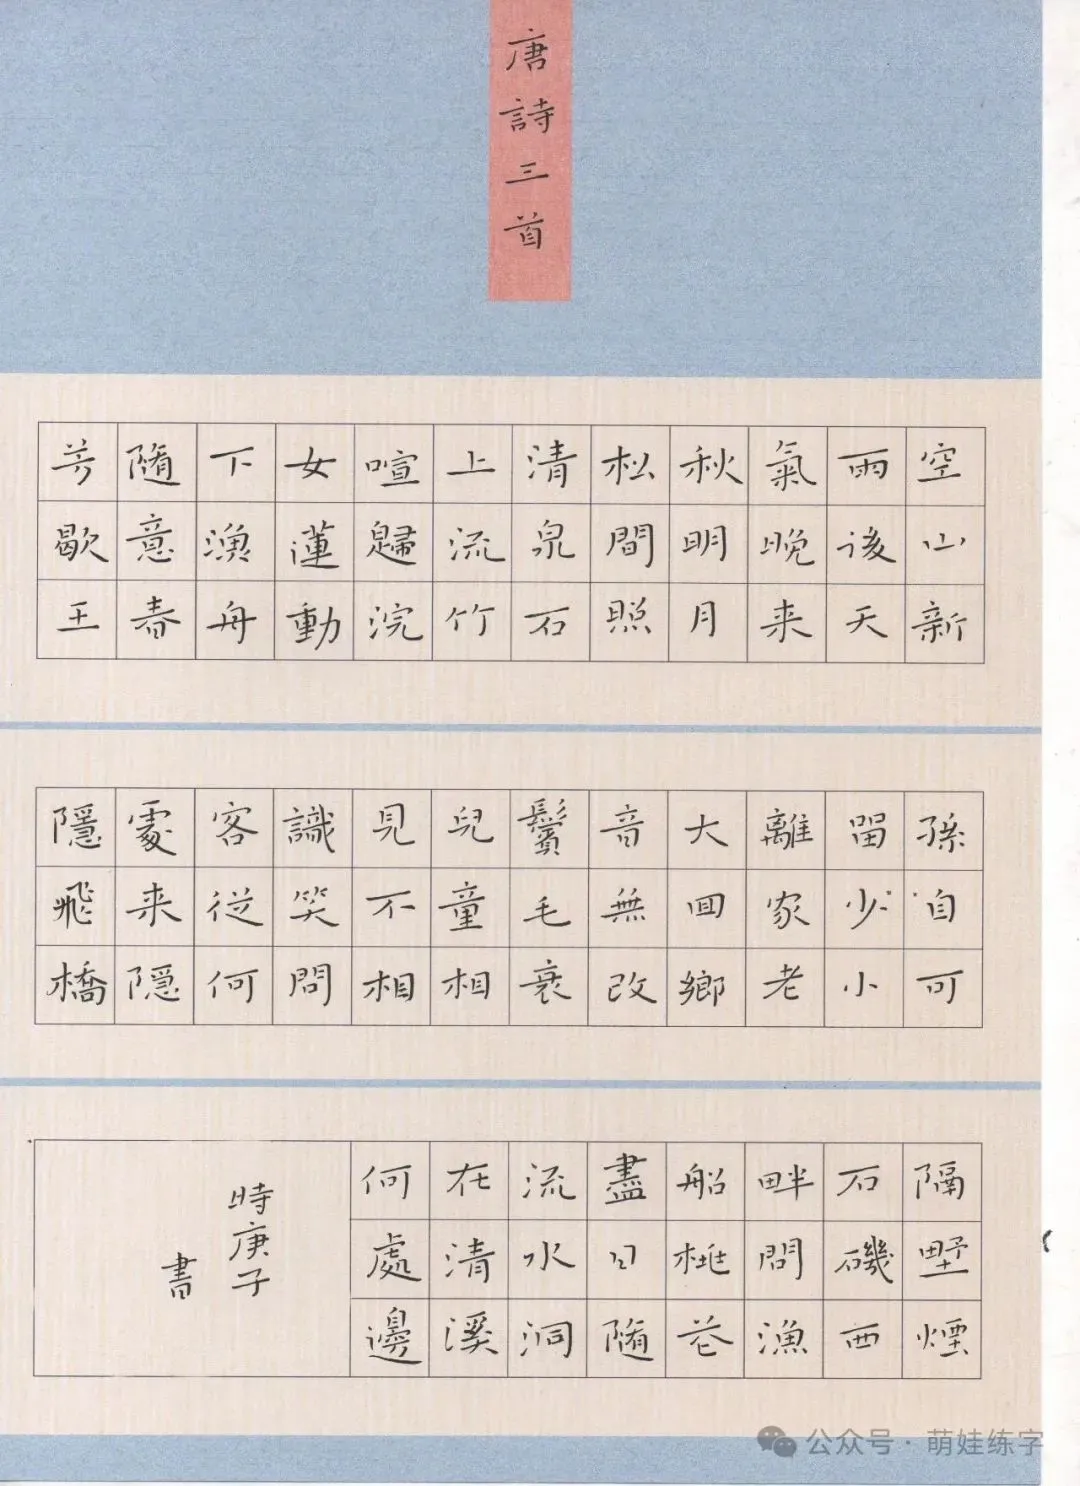 唐詩三首
空山新
雨後天
氣晚来
秋明月
松間照
清泉石
上流竹
喧歸浣
女蓮動
下漁舟
随意春
芳歇王
孫自可
留少小
離家老
大回鄉
音無改
鬢毛衰
兒童相
見不相
識笑問
客從何
處来隐
隱飛橋
隔野煙
石磯西
畔問漁
船桃花
盡日随
流水洞
在清溪
何處邊
時庚子
書
公众号·萌娃练字